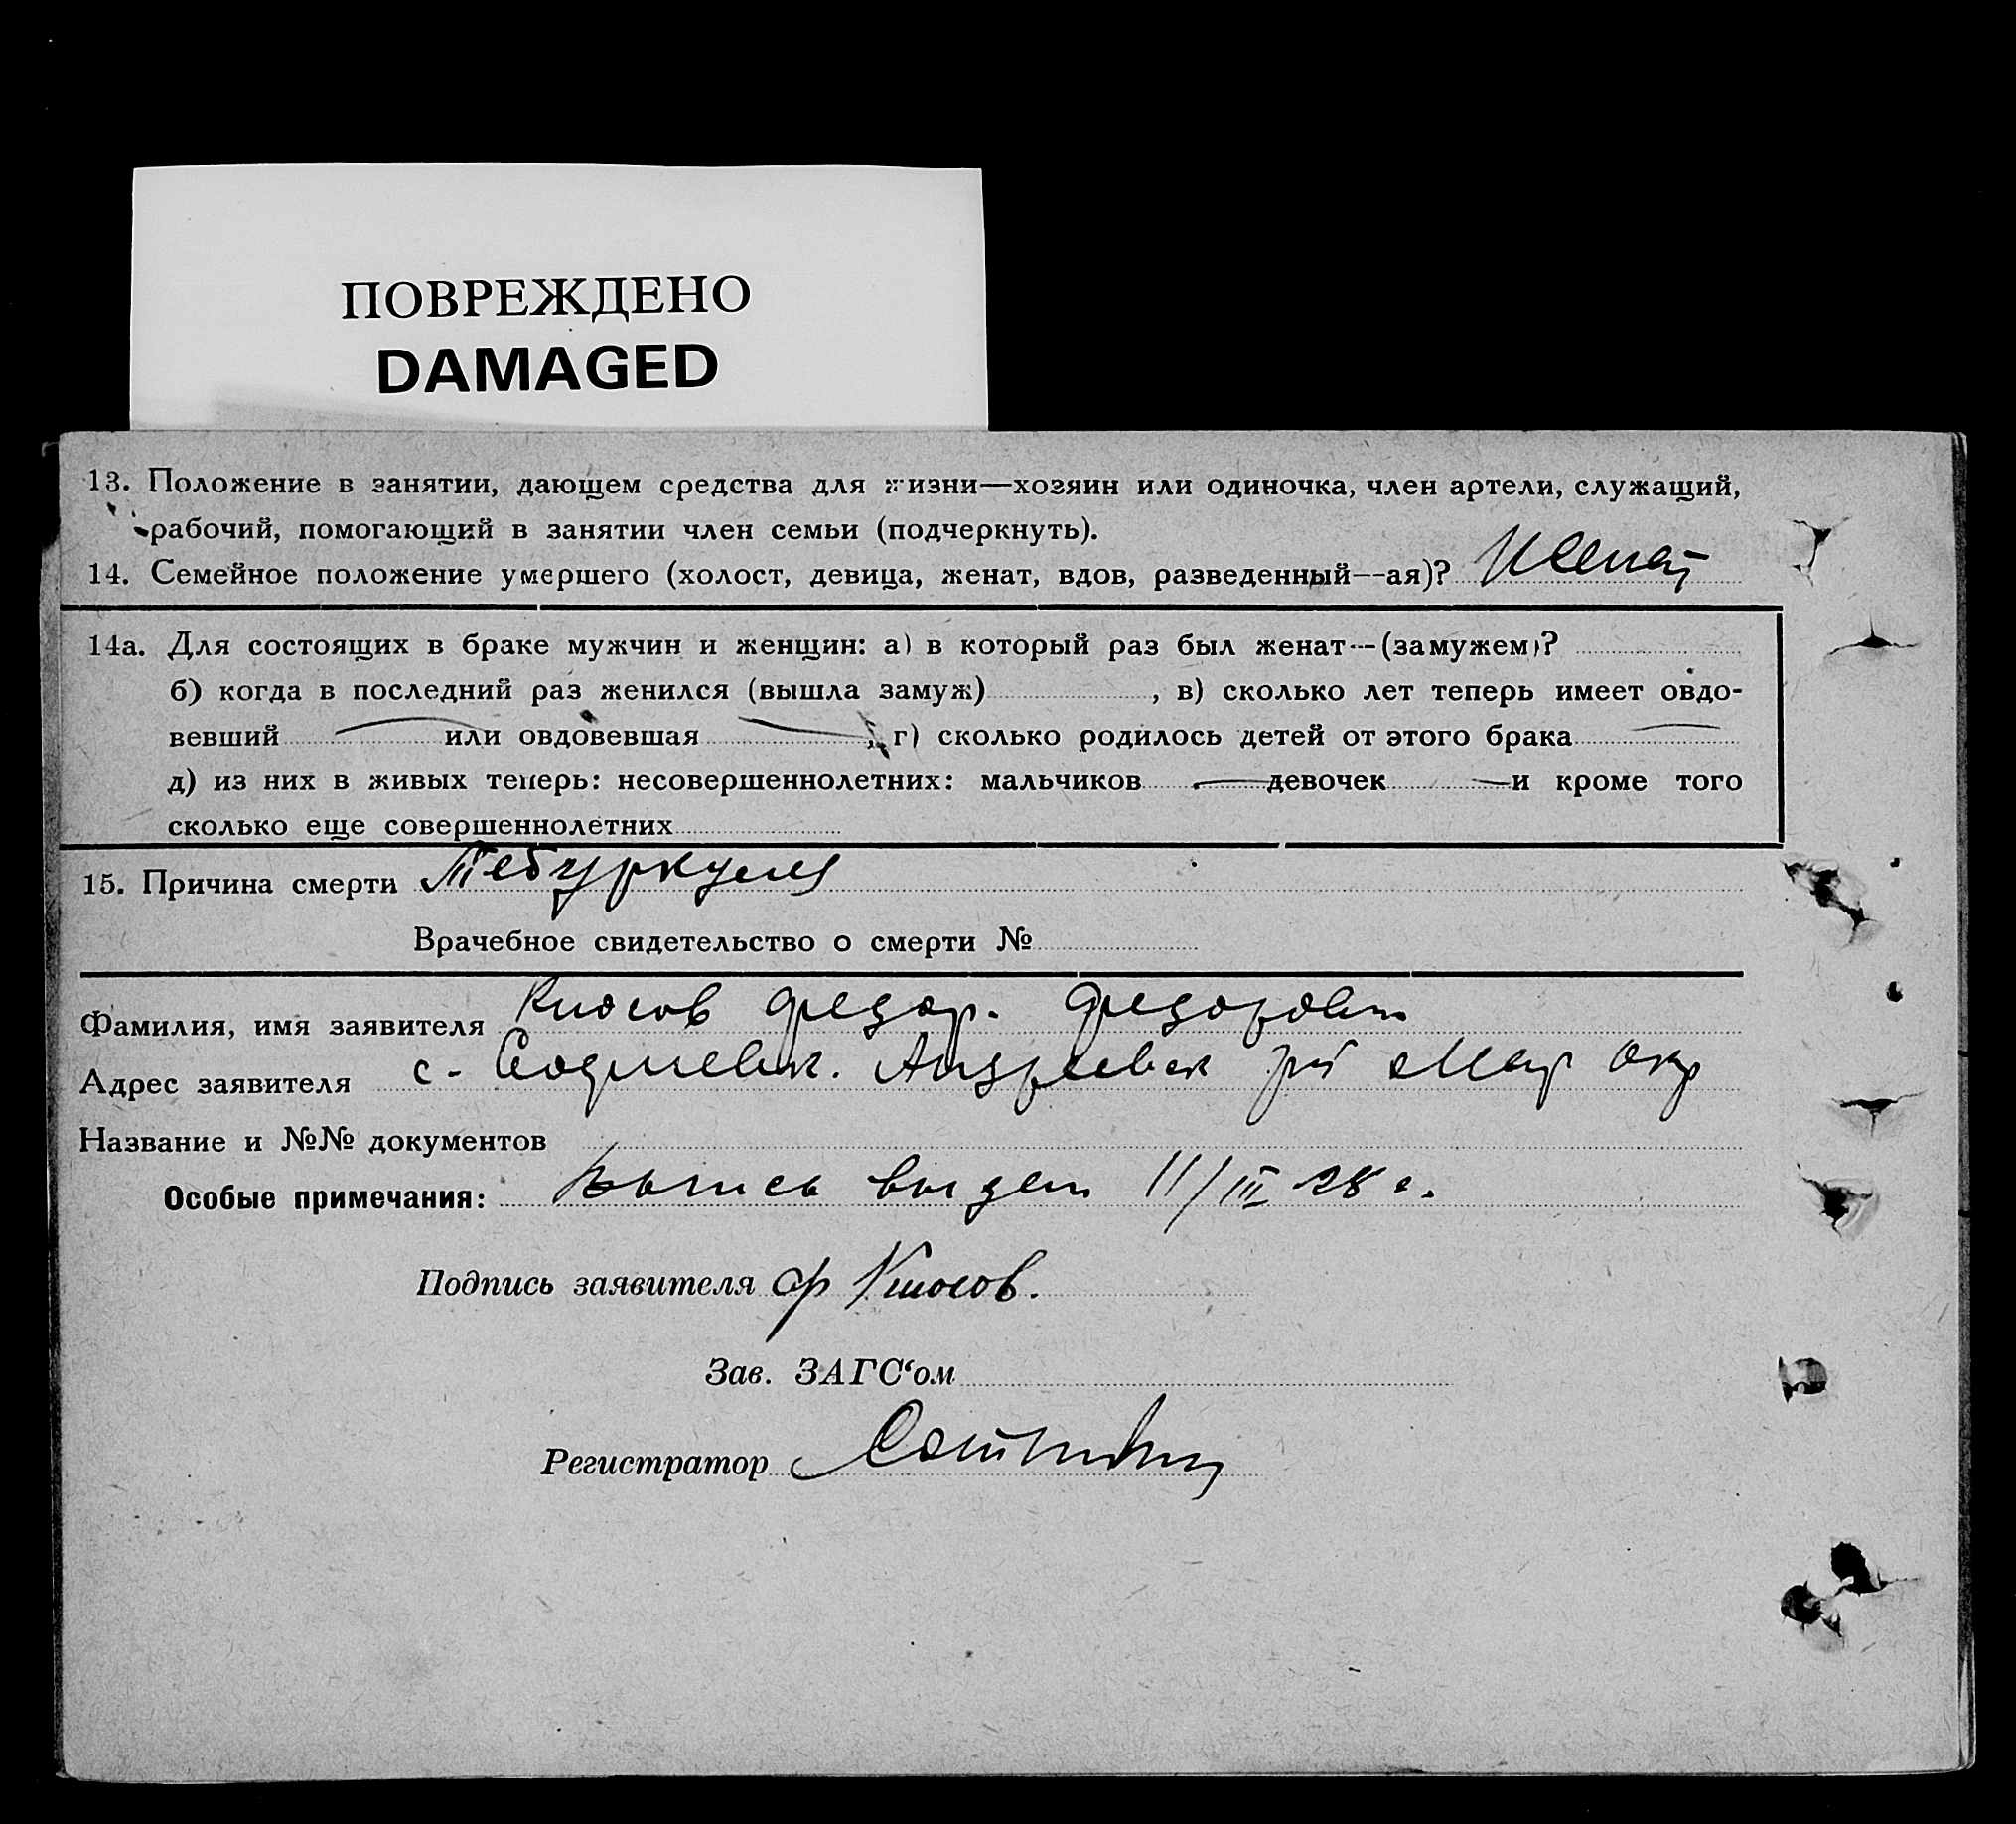 ПОВРЕЖДЕНО
DAMAGED
13. Положение в занятии, дающем средства для жизни—хозяин или одиночка, член артели, служащий,
рабочий, помогающий в занятии член семьи (подчеркнуть).
14. Семейное положение умершего (холост, девица, женат, вдов, разведенный—ая)? Женат
14а. Для состоящих в браке мужчин и женщин: а) в который раз был женат—(замужем)?
б) когда в последний раз женился (вышла замуж) , в) сколько лет теперь имеет овдо-
вевший или овдовевшая , г) сколько родилось детей от этого брака
д) из них в живых теперь: несовершеннолетних: мальчиков девочек и кроме того
сколько еще совершеннолетних
15. Причина смерти Тебуркулез
Врачебное свидетельство о смерти №
Фамилия, имя заявителя Федор. Федорович
Адрес заявителя с. Андреевск Мар Окр
Название и №№ документов
Особые примечания: выдан 11/III 28 г.
Подпись заявителя Ф
Зав. ЗАГС‘ом
Регистратор